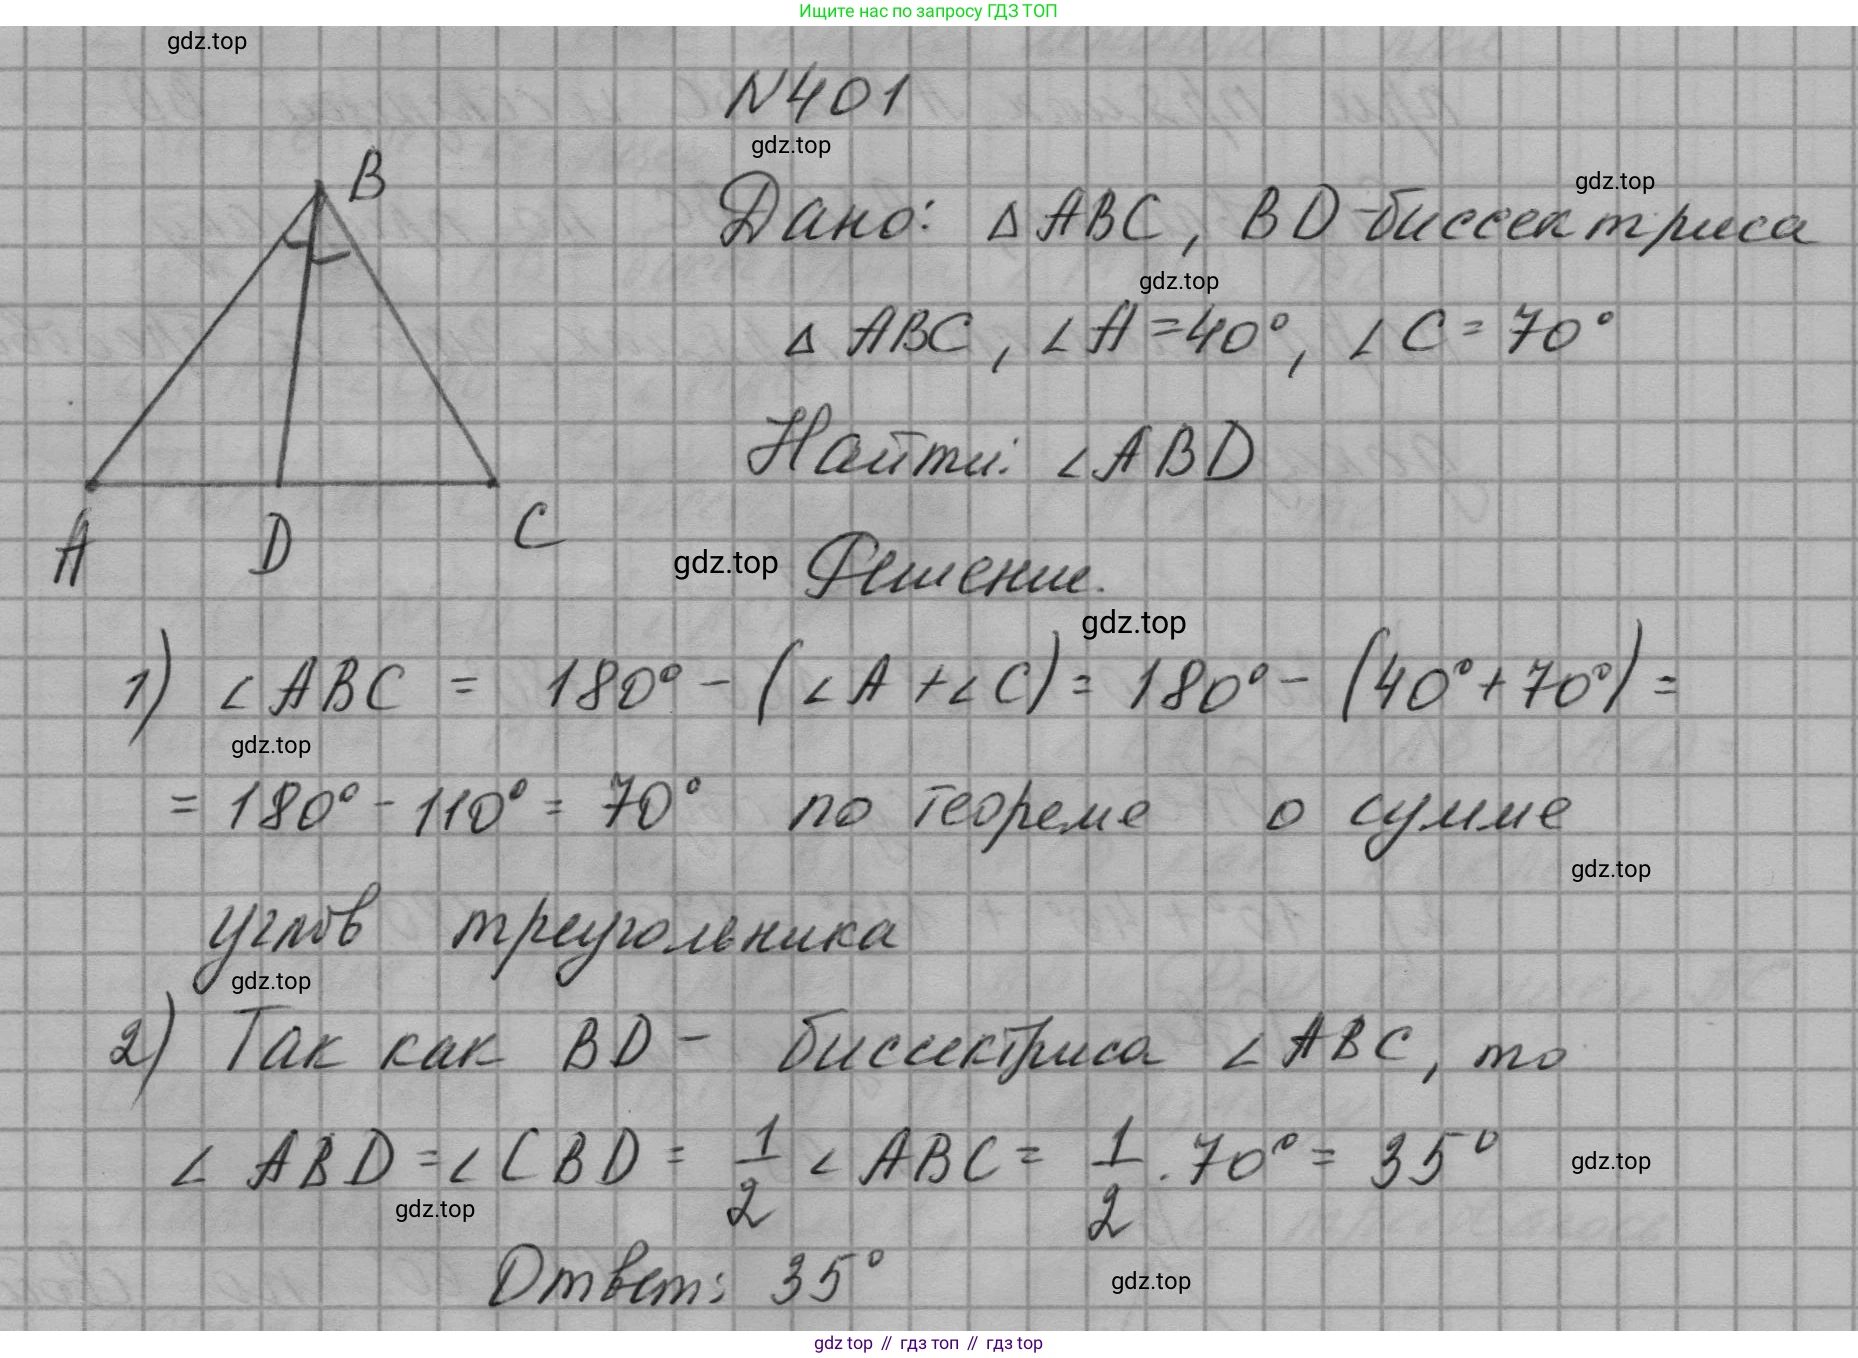 Ищите нас по запросу ГДЗ ТОП
gdz.top
N401
gdz.top
B
gdz.top
Дано: △ABC, BD-биссектриса
gdz.top
△ ABC, ∠A=40°, ∠C=70°
Найти: ∠ABD
A D C
gdz.top Решение.
gdz.top
1) ∠ABC = 180° - (∠A+∠C)= 180° - (40°+70°)=
gdz.top
= 180° - 110° = 70° по теореме о сумме
gdz.top
углов треугольника
gdz.top
2) Так как BD - биссектриса ∠ABC, то
∠ABD=∠CBD= 1/2 ∠ABC= 1/2 · 70°= 35°
gdz.top
gdz.top
Ответ: 35°
gdz.top
gdz top // гдз топ // гдз top